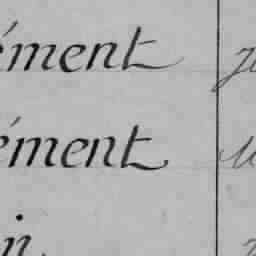 ément
ément
in